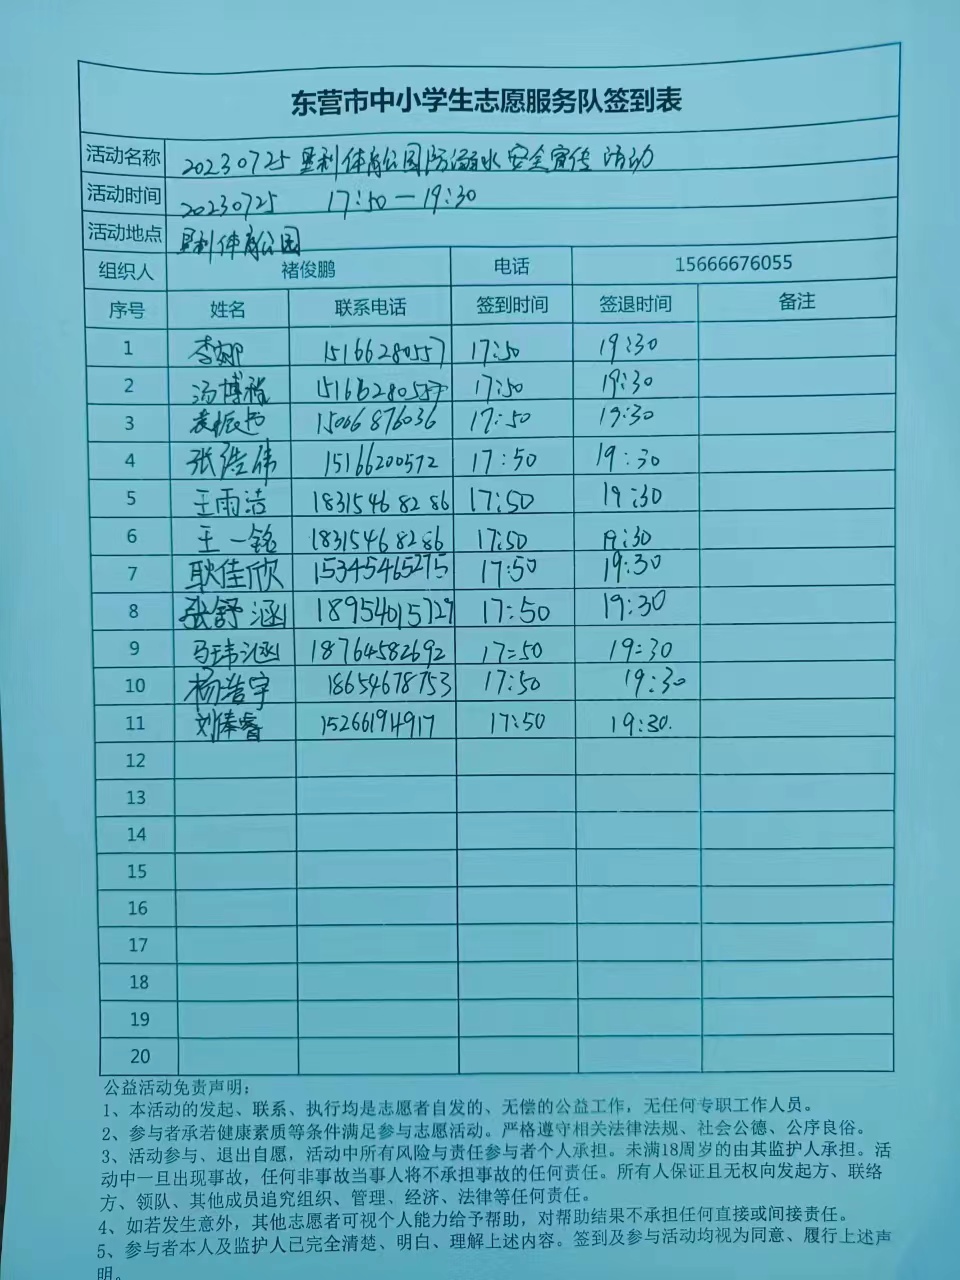 东营市中小学生志愿服务队签到表
活动名称 20230725 垦利体育公园防溺水安全宣传活动
活动时间 20230725 17:50—19:30
活动地点 垦利体育公园
组织人 褚俊鹏 电话 15666676055
序号 姓名 联系电话 签到时间 签退时间 备注
1 李娜 15166280557 17:50 19:30
2 汤博 15166280557 17:50 19:30
3 袁振 15066876036 17:50 19:30
4 张浩伟 15166200572 17:50 19:30
5 王雨洁 18315468286 17:50 19:30
6 王一铭 18315468286 17:50 19:30
7 耿佳欣 15345465275 17:50 19:30
8 张舒涵 18954015727 17:50 19:30
9 马玮涵 18764582692 17:50 19:30
10 杨浩宇 18654678753 17:50 19:30
11 刘俸睿 15266194917 17:50 19:30
12
13
14
15
16
17
18
19
20
公益活动免责声明:
1、本活动的发起、联系、执行均是志愿者自发的、无偿的公益工作,无任何专职工作人员。
2、参与者承若健康素质等条件满足参与志愿活动。严格遵守相关法律法规、社会公德、公序良俗。
3、活动参与、退出自愿,活动中所有风险与责任参与者个人承担。未满18周岁的由其监护人承担。活
动中一旦出现事故,任何非事故当事人将不承担事故的任何责任。所有人保证且无权向发起方、联络
方、领队、其他成员追究组织、管理、经济、法律等任何责任。
4、如若发生意外,其他志愿者可视个人能力给予帮助,对帮助结果不承担任何直接或间接责任。
5、参与者本人及监护人已完全清楚、明白、理解上述内容。签到及参与活动均视为同意、履行上述声
明。